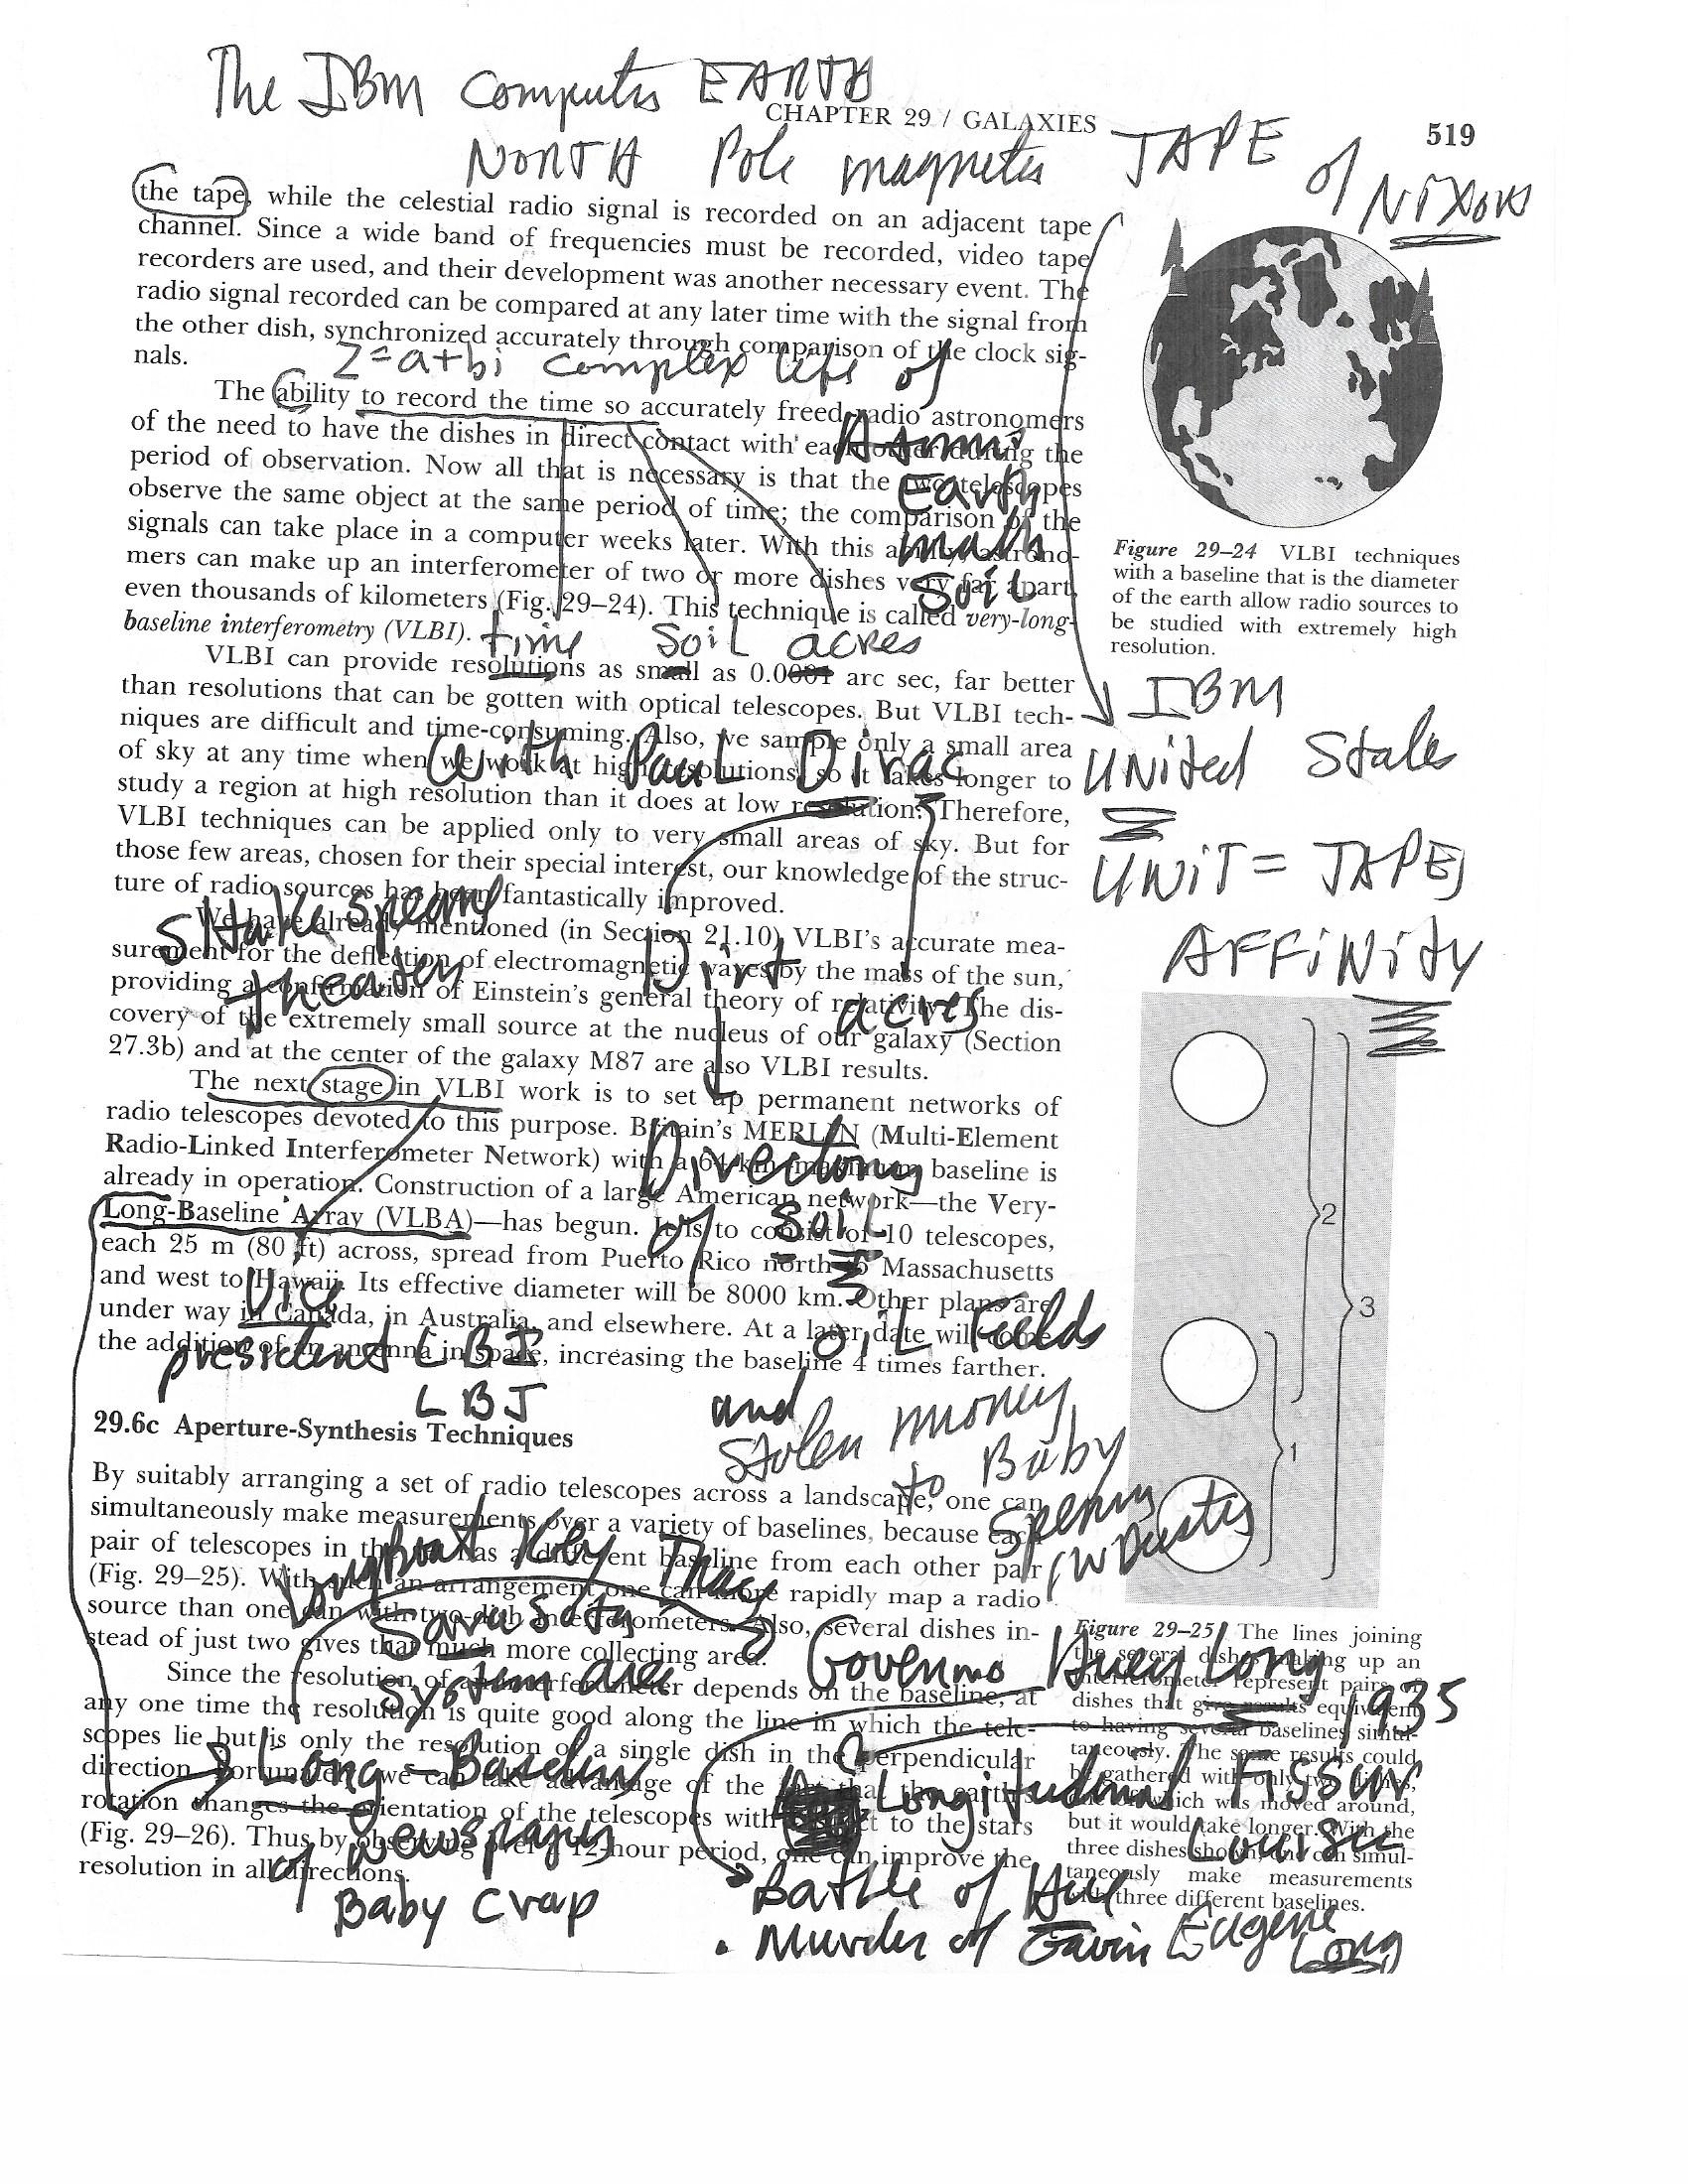 The IBM Computer EARTH
CHAPTER 29 / GALAXIES
519
NORTH Pole magnetic TAPE of NIXON
the tape, while the celestial radio signal is recorded on an adjacent tape
channel. Since a wide band of frequencies must be recorded, video tape
recorders are used, and their development was another necessary event. The
radio signal recorded can be compared at any later time with the signal from
the other dish, synchronized accurately through comparison of the clock sig-
nals.
Z=a+bi complex life of
The ability to record the time so accurately freed radio astronomers
of the need to have the dishes in direct contact with each other during the
period of observation. Now all that is necessary is that the two telescopes
observe the same object at the same period of time; the comparison of the
signals can take place in a computer weeks later. With this ability, astrono-
mers can make up an interferometer of two or more dishes very far apart,
even thousands of kilometers (Fig. 29–24). This technique is called very-long-
baseline interferometry (VLBI).
Earth
math
Soil
time Soil acres
VLBI can provide resolutions as small as 0.0001 arc sec, far better
than resolutions that can be gotten with optical telescopes. But VLBI tech-
niques are difficult and time-consuming. Also, we sample only a small area
of sky at any time when we work at high resolutions, so it takes longer to
study a region at high resolution than it does at low resolution. Therefore,
VLBI techniques can be applied only to very small areas of sky. But for
those few areas, chosen for their special interest, our knowledge of the struc-
ture of radio sources has been fantastically improved.
With Paul Dirac
We have already mentioned (in Section 21.10) VLBI's accurate mea-
surement for the deflection of electromagnetic waves by the mass of the sun,
providing a confirmation of Einstein's general theory of relativity. The dis-
covery of the extremely small source at the nucleus of our galaxy (Section
27.3b) and at the center of the galaxy M87 are also VLBI results.
SHakespeare
theater
Dirt
acres
The next stage in VLBI work is to set up permanent networks of
radio telescopes devoted to this purpose. Britain's MERLIN (Multi-Element
Radio-Linked Interferometer Network) with a 64-km maximum baseline is
already in operation. Construction of a large American network—the Very-
Long-Baseline Array (VLBA)—has begun. It is to consist of 10 telescopes,
each 25 m (80 ft) across, spread from Puerto Rico north to Massachusetts
and west to Hawaii. Its effective diameter will be 8000 km. Other plans are
under way in Canada, in Australia, and elsewhere. At a later date will come
the addition of an antenna in space, increasing the baseline 4 times farther.
Directory
of Soil
OIL Fields
Vice
president LBI
LBJ
and
Stolen money
to Baby
29.6c Aperture-Synthesis Techniques
By suitably arranging a set of radio telescopes across a landscape, one can
simultaneously make measurements over a variety of baselines, because each
pair of telescopes in the has a different baseline from each other pair
(Fig. 29–25). With such an arrangement one can more rapidly map a radio
source than one can with two-dish interferometers. Also, several dishes in-
stead of just two gives that much more collecting area.
Longboat Key
Sarasota
System
Since the resolution of an interferometer depends on the baseline, at
any one time the resolution is quite good along the line in which the tele-
scopes lie but is only the resolution of a single dish in the perpendicular
direction. Fortunately, we can take advantage of the fact that the earth's
rotation changes the orientation of the telescopes with respect to the stars
(Fig. 29–26). Thus by observing over a 12-hour period, one can improve the
resolution in all directions.
Long-
newspaper
of
Baby Crap
Figure 29–24 VLBI techniques
with a baseline that is the diameter
of the earth allow radio sources to
be studied with extremely high
resolution.
IBM
UNited States
UNiT = TAPE
AFFiNity
2
3
1
Figure 29–25 The lines joining
the several dishes making up an
interferometer represent pairs of
dishes that give results equivalent
to having several baselines simul-
taneously. The same results could
be gathered with only two dishes,
one of which was moved around,
but it would take longer. With the
three dishes shown, one can simul-
taneously make measurements
with three different baselines.
Huey Long
1935
Longitudinal Fissur
Battle of
Murder of Gavin Eugene
Long